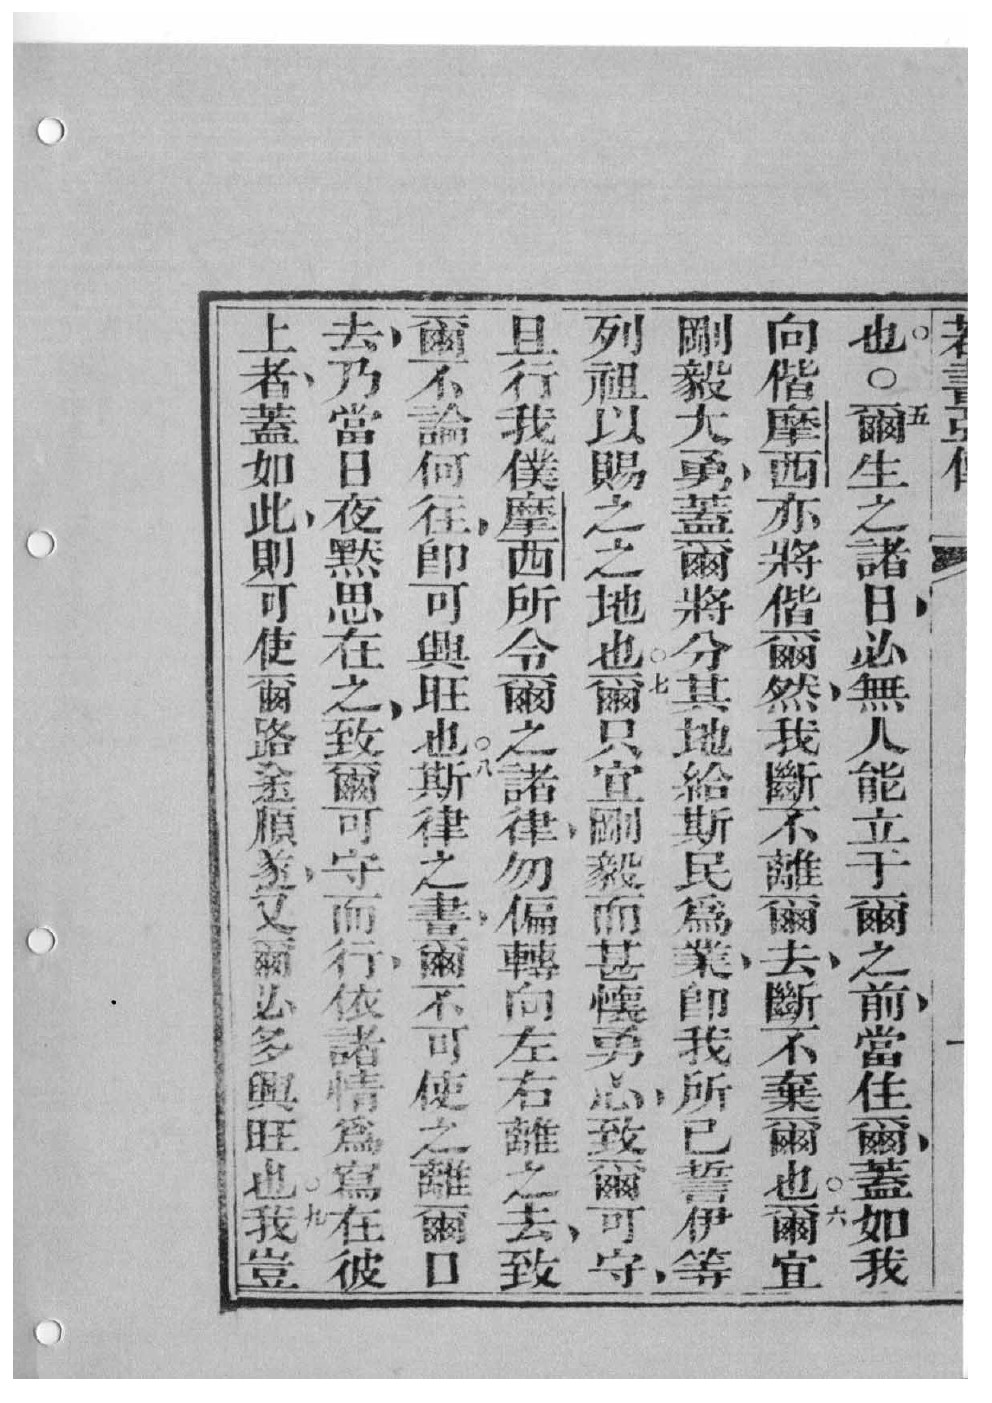 若書亞傳 一
也○五爾生之諸日必無人能立于爾之前當住爾蓋如我
向偕摩西亦將偕爾然我斷不離爾去斷不棄爾也○六爾宜
剛毅大勇蓋爾將分其地給斯民為業即我所已誓伊等
列祖以賜之之地也○七爾只宜剛毅而甚懷勇心致爾可守
且行我僕摩西所令爾之諸律勿偏轉向左右離之去致
爾不論何往即可興旺也○八斯律之書爾不可使之離爾口
去乃當日夜默思在之致爾可守而行依諸情為寫在彼
上者蓋如此則可使爾路途順遂又爾必多興旺也○九我豈